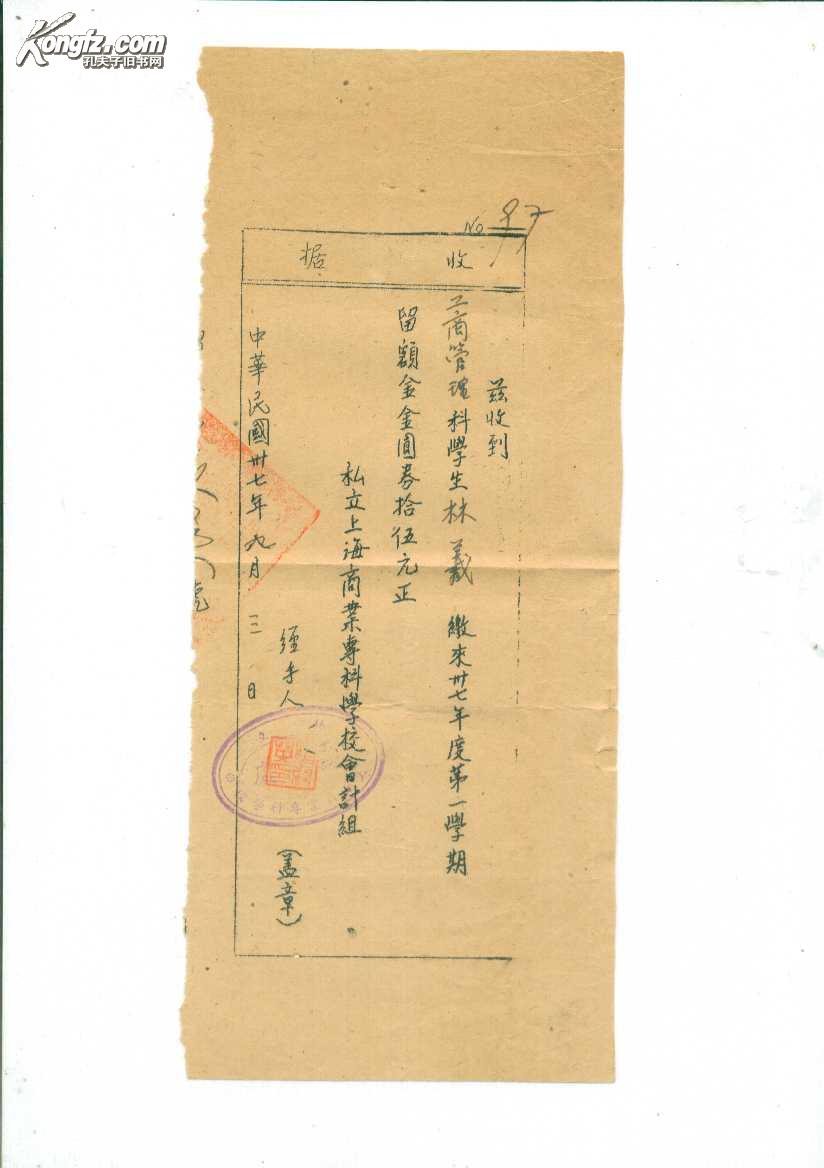 Kongfz.com
孔夫子旧书网
No 97
收據
兹收到
工商管理科學生林義 繳來卅七年度第一學期
留額金金圓券拾伍元正
私立上海商業專科學校會計組
經手人 (盖章)
中華民國卅七年九月三日